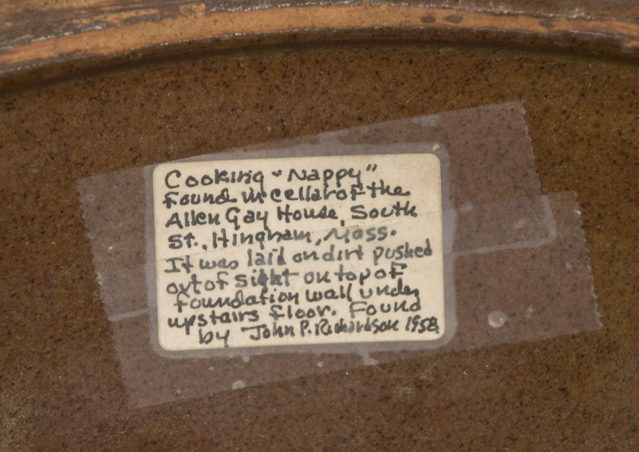 Cooking "Nappy"
found in cellar of the
Allen Gay House, South
St., Hingham, Mass.
It was laid on dirt pushed
out of sight on top of
foundation wall under
upstairs floor. Found
by John P. Richardson 1958